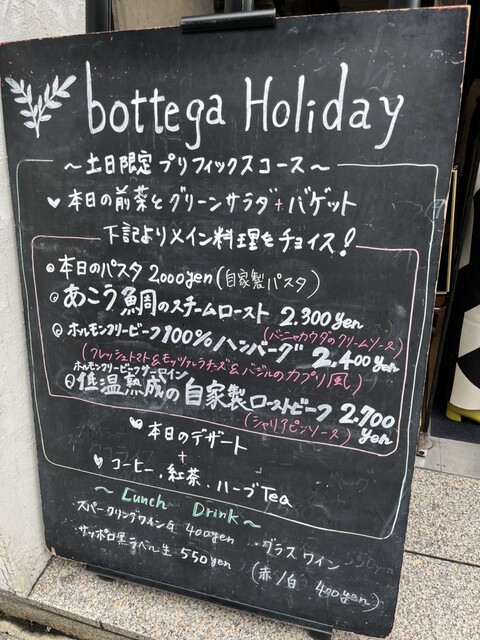 bottega Holiday
～土日限定プリフィックスコース～
♥本日の前菜とグリーンサラダ+バゲット
下記よりメイン料理をチョイス!
本日のパスタ 2000yen (自家製パスタ)
あこう鯛のスチームロースト 2,300yen
(バーニャカウダのクリームソース)
ホルモンフリービーフ100%ハンバーグ 2,400yen
(フレッシュトマト&モッツァレラチーズ&バジルのカプリ風)
ホルモンフリービーフサーロイン
低温熟成の自家製ローストビーフ 2,700yen
(シャリアピンソース)
♥本日のデザート
+
♥コーヒー、紅茶、ハーブTea
～Lunch Drink～
スパークリングワイン 400yen
グラスワイン
サッポロ黒ラベル生 550yen
(赤/白 400yen)